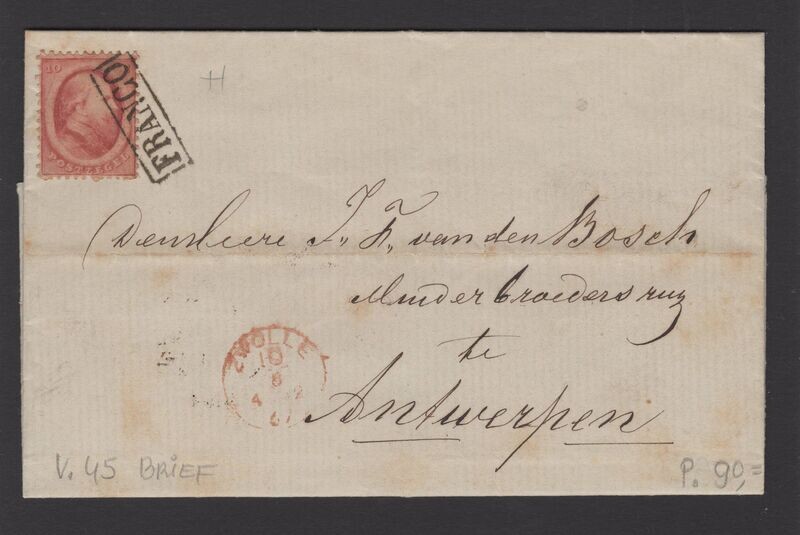 10
POSTZEGEL
FRANCO
H
Den Heere J. F. van den Bosch
Minderbroeders ruy
te
Antwerpen
ZWOLLE
10
8
4
6
V. 45 BRIEF
P. 90,=